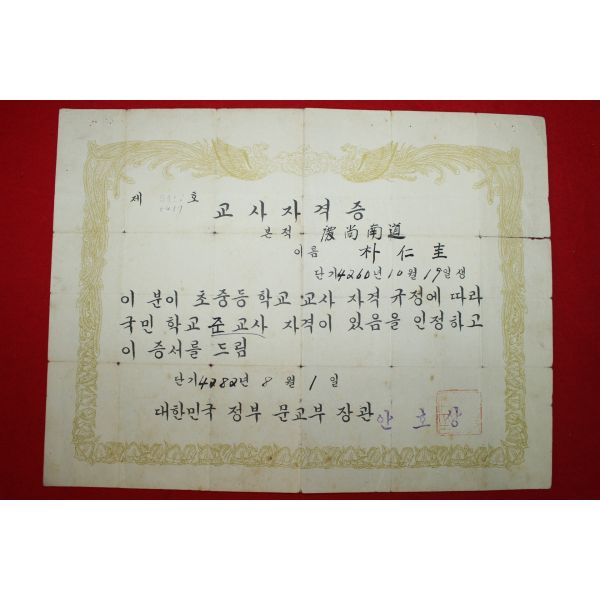 제 호
교사자격증
본적 慶尚南道
이름 朴仁圭
단기4260년 10월 19일생
이 분이 초중등 학교 교사 자격 규정에 따라
국민 학교 준교사 자격이 있음을 인정하고
이 증서를 드림
단기4282년 8월 1일
대한민국 정부 문교부 장관 안호상